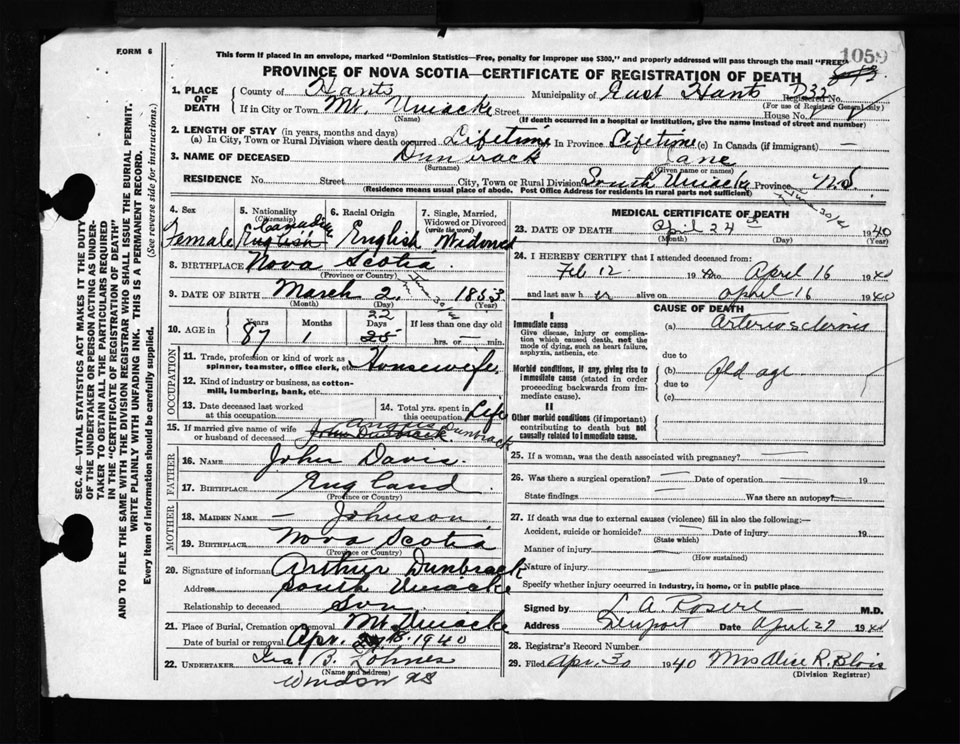 FORM 6
This form if placed in an envelope, marked "Dominion Statistics—Free, penalty for improper use $300," and properly addressed will pass through the mail "FREE"
1059
PROVINCE OF NOVA SCOTIA—CERTIFICATE OF REGISTRATION OF DEATH
1. PLACE OF DEATH County of Hants Municipality of East Hants D32 Registered No.
(For use of Registrar General only)
If in City or Town Mt. Uniacke Street House No.
(Name) (If death occurred in a hospital or institution, give the name instead of street and number)
2. LENGTH OF STAY (in years, months and days)
(a) In City, Town or Rural Division where death occurred Lifetime In Province Lifetime (c) In Canada (if immigrant) —
3. NAME OF DECEASED Dunbrack Jane
(Surname) (Given name or names)
RESIDENCE No. Street City, Town or Rural Division South Uniacke Province N.S.
(Residence means usual place of abode. Post Office Address for residents in rural parts not sufficient)
4. Sex 5. Nationality (Citizenship) 6. Racial Origin 7. Single, Married, Widowed or Divorced (write the word)
Female Canadian English English Widowed
8. BIRTHPLACE Nova Scotia
(Province or Country)
9. DATE OF BIRTH March 2 1853
(Month) (Day) (Year)
10. AGE in Years Months Days If less than one day old
22
87 1 25 hrs. or min.
OCCUPATION
11. Trade, profession or kind of work as spinner, teamster, office clerk, etc. Housewife
12. Kind of industry or business, as cotton-mill, lumbering, bank, etc.
13. Date deceased last worked at this occupation 14. Total yrs. spent in this occupation Life
15. If married give name of wife or husband of deceased Dunbrack
John Dunbrack
FATHER
16. Name John Davis
17. Birthplace England
(Province or Country)
MOTHER
18. Maiden Name — Johnson
19. Birthplace Nova Scotia
(Province or Country)
20. Signature of informant Arthur Dunbrack
Address South Uniacke
Relationship to deceased Son
21. Place of Burial, Cremation or removal Mt. Uniacke
Date of burial or removal Apr. 1940
22. Undertaker Ira B.
(Name and address)
Windsor NS
MEDICAL CERTIFICATE OF DEATH
23. DATE OF DEATH April 24th 1940
(Month) (Day) (Year)
24. I HEREBY CERTIFY that I attended deceased from:
Feb 12 1940 to April 16 1940
and last saw her alive on April 16 1940
CAUSE OF DEATH
I
Immediate cause
Give disease, injury or complication which caused death, not the mode of dying, such as heart failure, asphyxia, asthenia, etc.
(a) Arteriosclerosis
due to
Morbid conditions, if any, giving rise to immediate cause (stated in order proceeding backwards from immediate cause).
(b) Old age
due to
(c)
II
Other morbid conditions (if important) contributing to death but not causally related to immediate cause.
25. If a woman, was the death associated with pregnancy? —
26. Was there a surgical operation? — Date of operation — 19
State findings — Was there an autopsy? —
27. If death was due to external causes (violence) fill in also the following:—
Accident, suicide or homicide? Date of injury 19
(State which)
Manner of injury
(How sustained)
Nature of injury
Specify whether injury occurred in industry, in home, or in public place
Signed by L. A. Rosere M.D.
Address Newport Date April 27 1940
28. Registrar's Record Number
29. Filed Apr. 30 1940 Mrs Alice R. Blois
(Division Registrar)
SEC. 46—VITAL STATISTICS ACT MAKES IT THE DUTY
OF THE UNDERTAKER OR PERSON ACTING AS UNDERTAKER TO OBTAIN ALL THE PARTICULARS REQUIRED
IN THE "CERTIFICATE OF REGISTRATION OF DEATH"
AND TO FILE THE SAME WITH THE DIVISION REGISTRAR WHO SHALL ISSUE THE BURIAL PERMIT.
WRITE PLAINLY WITH UNFADING INK. THIS IS A PERMANENT RECORD.
Every item of information should be carefully supplied. (See reverse side for instructions.)